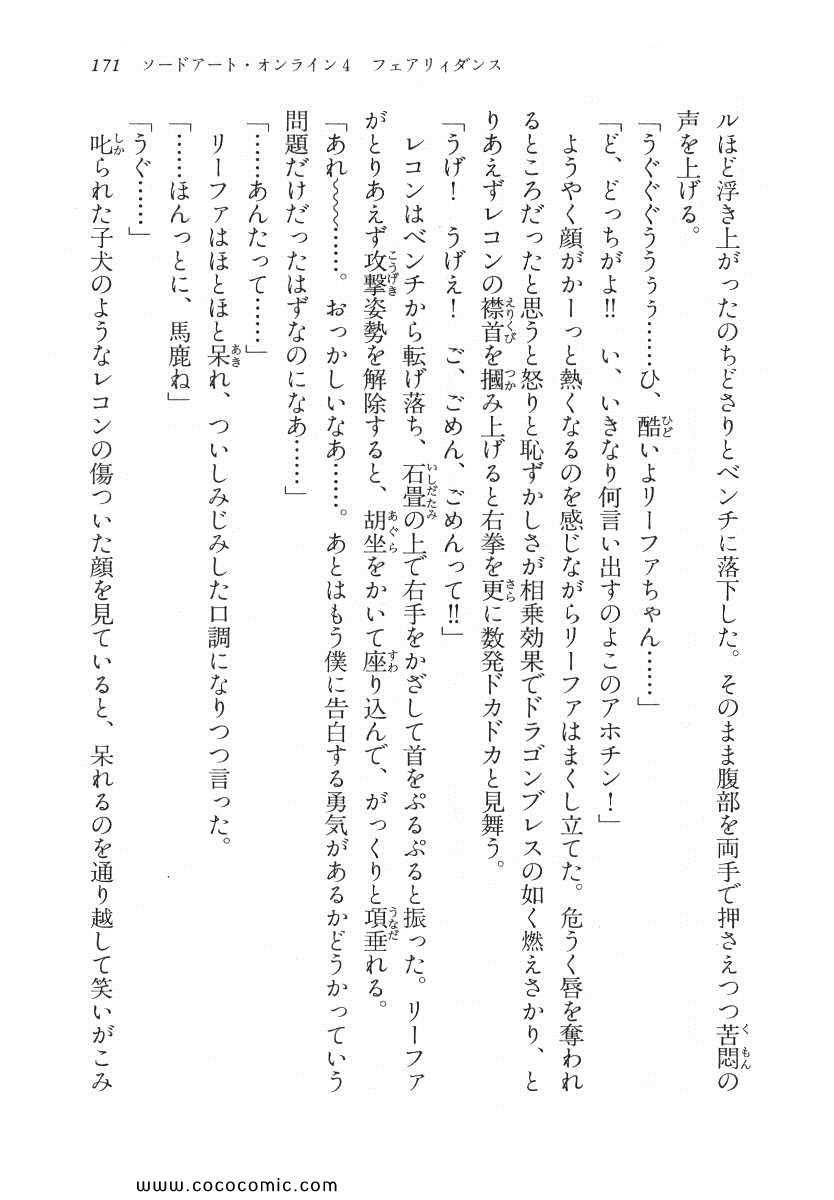 171　ソードアート・オンライン4　フェアリィダンス
ルほど浮き上がったのちどさりとベンチに落下した。そのまま腹部を両手で押さえつつ苦悶の
声を上げる。
「うぐぐぐうううぅ……ひ、酷いよリーファちゃん……」
「ど、どっちがよ!!　い、いきなり何言い出すのよこのアホチン！」
　ようやく顔がかーっと熱くなるのを感じながらリーファはまくし立てた。危うく唇を奪われ
るところだったと思うと怒りと恥ずかしさが相乗効果でドラゴンブレスの如く燃えさかり、と
りあえずレコンの襟首を摑み上げると右拳を更に数発ドカドカと見舞う。
「うげ！　うげえ！　ご、ごめん、ごめんって!!」
　レコンはベンチから転げ落ち、石畳の上で右手をかざして首をぷるぷると振った。リーファ
がとりあえず攻撃姿勢を解除すると、胡坐をかいて座り込んで、がっくりと項垂れる。
「あれ〜〜……。おっかしいなあ……。あとはもう僕に告白する勇気があるかどうかっていう
問題だけだったはずなのになあ……」
「……あんたって……」
　リーファはほとほと呆れ、ついしみじみした口調になりつつ言った。
「……ほんっとに、馬鹿ね」
「うぐ……」
　叱られた子犬のようなレコンの傷ついた顔を見ていると、呆れるのを通り越して笑いがこみ
www.cococomic.com